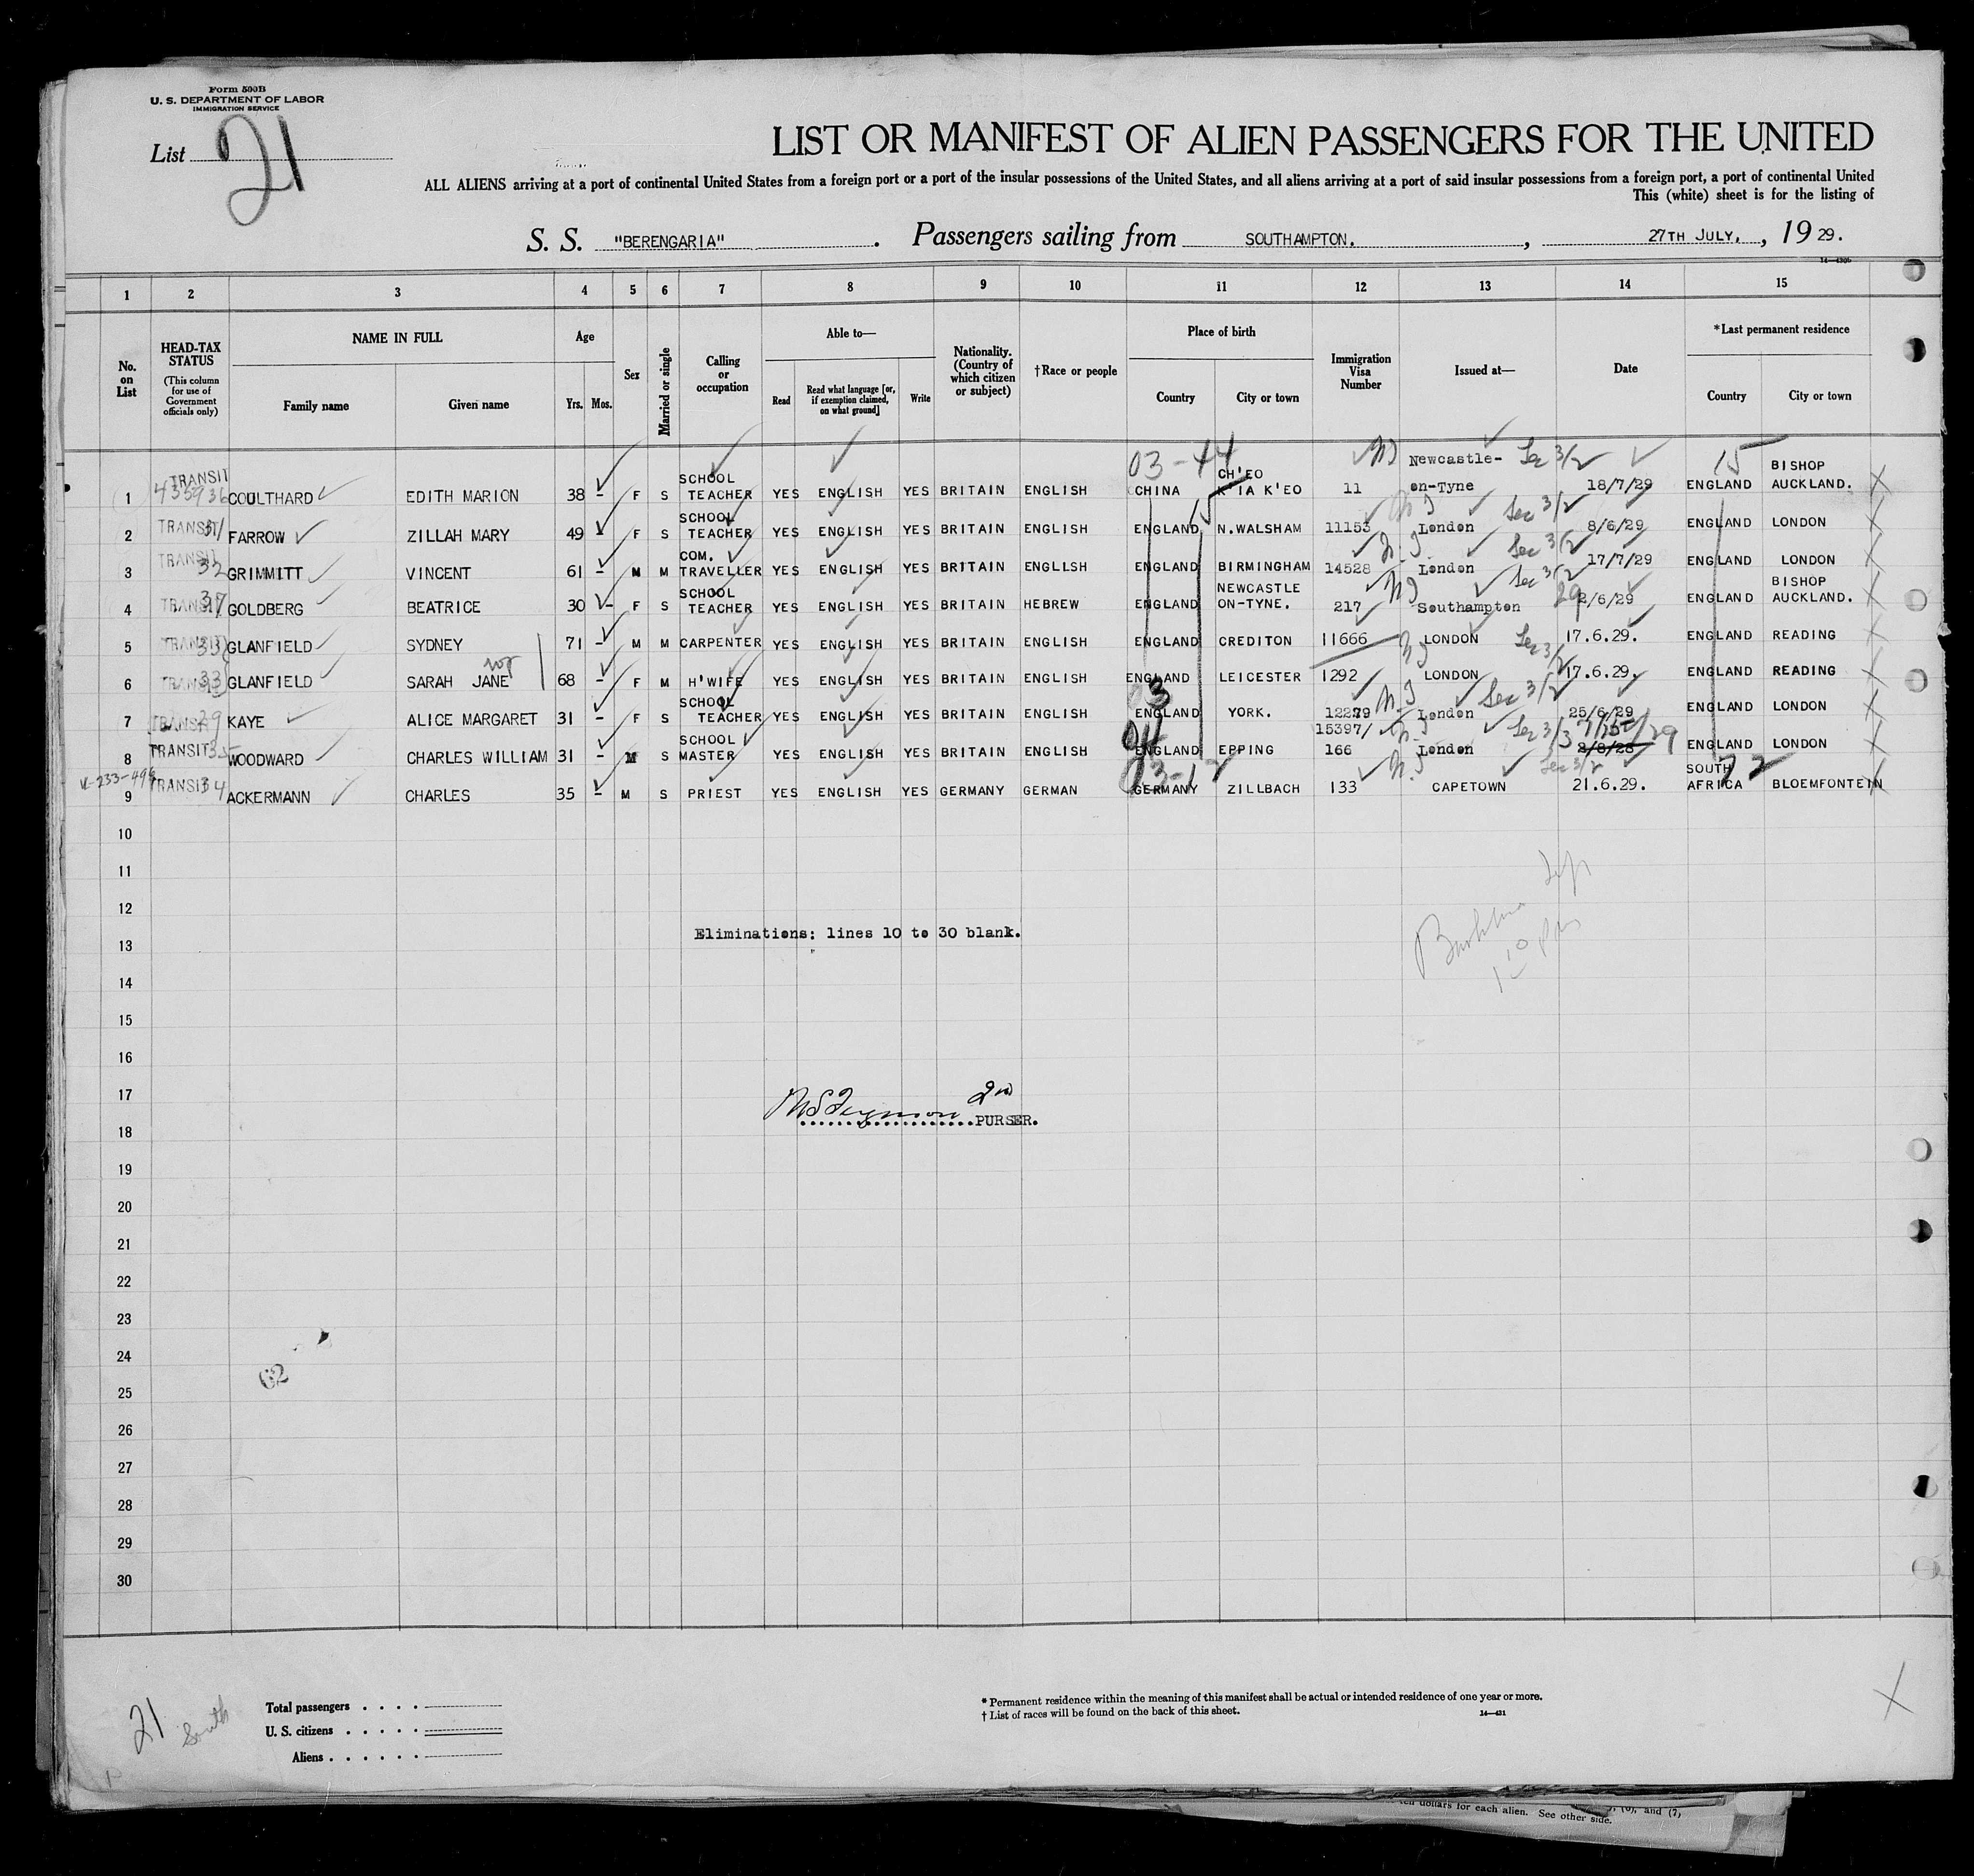 Form 500B
U. S. DEPARTMENT OF LABOR
IMMIGRATION SERVICE
List 21
LIST OR MANIFEST OF ALIEN PASSENGERS FOR THE UNITED
ALL ALIENS arriving at a port of continental United States from a foreign port or a port of the insular possessions of the United States, and all aliens arriving at a port of said insular possessions from a foreign port, a port of continental United
This (white) sheet is for the listing of
S. S. "BERENGARIA" . Passengers sailing from SOUTHAMPTON. , 27TH JULY. , 19 29.
1 2 3 4 5 6 7 8 9 10 11 12 13 14 15
No. on List
HEAD-TAX STATUS
(This column for use of Government officials only)
NAME IN FULL
Family name Given name
Age
Yrs. Mos.
Sex
Married or single
Calling or occupation
Able to—
Read Read what language [or, if exemption claimed, on what ground] Write
Nationality. (Country of which citizen or subject)
†Race or people
Place of birth
Country City or town
Immigration Visa Number
Issued at—
Date
*Last permanent residence
Country City or town
03-44 15
1 TRANSIT COULTHARD EDITH MARION 38 - F S SCHOOL TEACHER YES ENGLISH YES BRITAIN ENGLISH CHINA CH'EO K'IA K'EO 11 Newcastle-on-Tyne Sec 3/2 18/7/29 ENGLAND BISHOP AUCKLAND.
2 TRANSIT FARROW ZILLAH MARY 49 F S SCHOOL TEACHER YES ENGLISH YES BRITAIN ENGLISH ENGLAND N.WALSHAM 11153 London Sec 3/2 8/6/29 ENGLAND LONDON
3 TRANSIT 32 GRIMMITT VINCENT 61 - M M COM. TRAVELLER YES ENGLISH YES BRITAIN ENGLISH ENGLAND BIRMINGHAM 14528 London Sec 3/2 17/7/29 ENGLAND LONDON
4 TRANSIT 37 GOLDBERG BEATRICE 30 - F S SCHOOL TEACHER YES ENGLISH YES BRITAIN HEBREW ENGLAND NEWCASTLE ON-TYNE. 217 Southampton Sec 3/2 /6/29 ENGLAND BISHOP AUCKLAND.
5 TRANSIT 33 GLANFIELD SYDNEY 71 - M M CARPENTER YES ENGLISH YES BRITAIN ENGLISH ENGLAND CREDITON 11666 LONDON 17.6.29. ENGLAND READING
6 TRANSIT 33 GLANFIELD SARAH JANE 68 - F M H'WIFE YES ENGLISH YES BRITAIN ENGLISH ENGLAND LEICESTER 1292 LONDON Sec 3/2 17.6.29. ENGLAND READING
03
7 TRANSIT 29 KAYE ALICE MARGARET 31 - F S SCHOOL TEACHER YES ENGLISH YES BRITAIN ENGLISH ENGLAND YORK. 12279 London Sec 3/2 25/6/29 ENGLAND LONDON
8 TRANSIT 35 WOODWARD CHARLES WILLIAM 31 - M S SCHOOL MASTER YES ENGLISH YES BRITAIN ENGLISH ENGLAND EPPING 15397/166 London Sec 3/3 ENGLAND LONDON
03-12 72
9 TRANSIT 34 ACKERMANN CHARLES 35 - M S PRIEST YES ENGLISH YES GERMANY GERMAN GERMANY ZILLBACH 133 CAPETOWN Sec 3/2 21.6.29. SOUTH AFRICA BLOEMFONTEIN
10
11
12
Eliminations: lines 10 to 30 blank.
13
14
15
16
17
2nd
PURSER.
18
19
20
21
22
23
24
62
25
26
27
28
29
30
21 South
Total passengers
U. S. citizens
Aliens
* Permanent residence within the meaning of this manifest shall be actual or intended residence of one year or more.
† List of races will be found on the back of this sheet.
14—431
dollars for each alien. See other side.
(6), and (7),